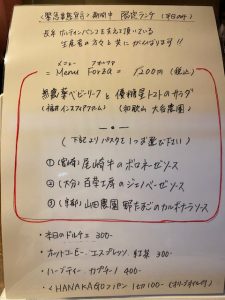 <緊急事態宣言> 期間中 限定ランチ (平日のみ)
長年 ポルティシペンコを支えて頂いている
生産者の方々と共にがんばります!!
メニュー フォルツァ
= Menu Forza = 1200円 (税込)
無農薬ベビーリーフと優糖星トマトのサラダ
(福井インスファファーム) (和歌山 大谷農園)
(下記よりパスタを1つお選び下さい)
① (宮崎) 尾崎牛のボロネーゼソース
② (大分) 百菜工房のジェノベーゼソース
③ (京都) 山田農園 野たまごのカルボナーラソース
・本日のドルチェ 300-
・ホットコーヒー エスプレッソ 紅茶 300-
・ハーブティー カプチーノ 400-
・<HANAKAGOのパン 1コ 100-